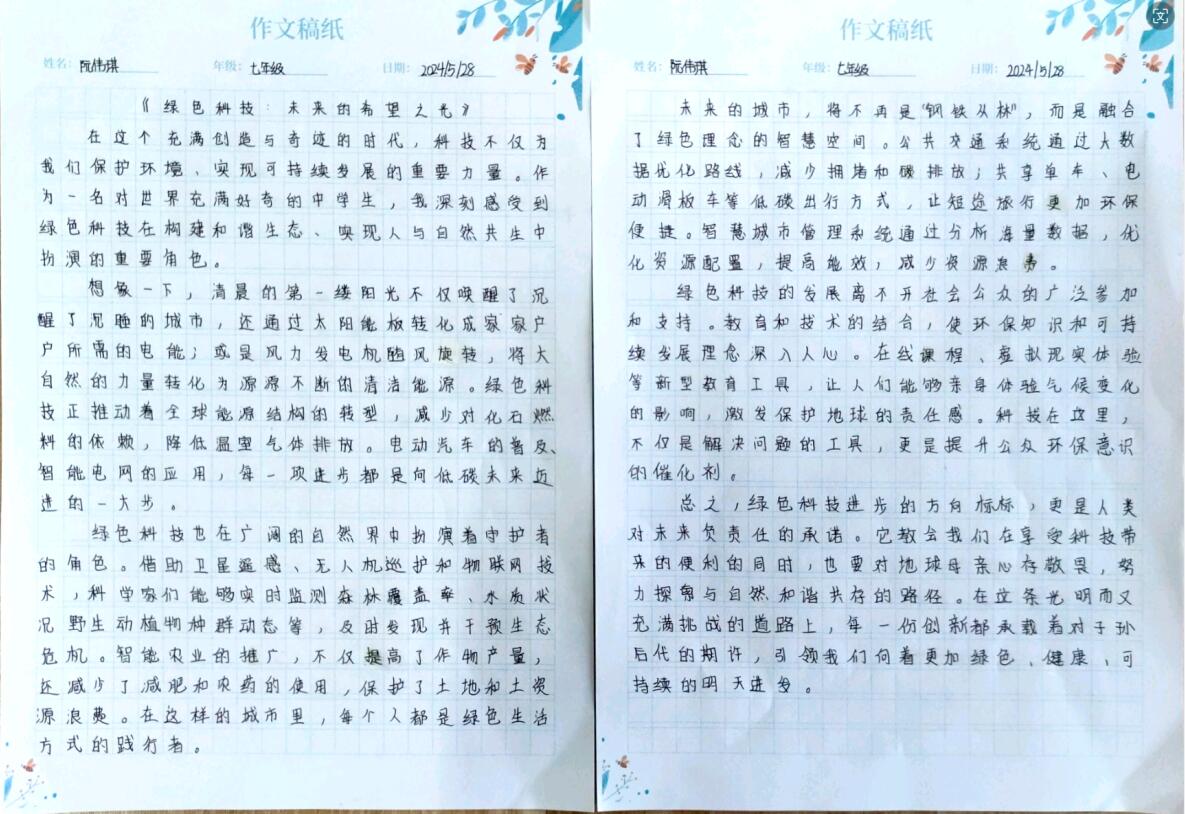 作文稿纸
姓名：阮伟琪 年级：七年级 日期：2024/5/28
《绿色科技：未来的希望之光》
在这个充满创造与奇迹的时代，科技不仅为
我们保护环境、实现可持续发展的重要力量。作
为一名对世界充满好奇的中学生，我深刻感受到
绿色科技在构建和谐生态、实现人与自然共生中
扮演的重要角色。
想象一下，清晨的第一缕阳光不仅唤醒了沉
醒了沉睡的城市，还通过太阳能板转化成家家户
户所需的电能；或是风力发电机随风旋转，将大
自然的力量转化为源源不断的清洁能源。绿色科
技正推动着全球能源结构的转型，减少对化石燃
料的依赖，降低温室气体排放。电动汽车的普及、
智能电网的应用，每一项进步都是向低碳未来迈
进的一大步。
绿色科技也在广阔的自然界中扮演着守护者
的角色。借助卫星遥感、无人机巡护和物联网技
术，科学家们能够实时监测森林覆盖率、水质状
况野生动植物种群动态等，及时发现并干预生态
危机。智能农业的推广，不仅提高了作物产量，
还减少了减肥和农药的使用，保护了土地和土资
源浪费。在这样的城市里，每个人都是绿色生活
方式的践行者。
作文稿纸
姓名：阮伟琪 年级：七年级 日期：2024/5/28
未来的城市，将不再是“钢铁从林”，而是融合
了绿色理念的智慧空间。公共交通系统通过大数
据优化路线，减少拥堵和碳排放；共享单车、电
动滑板车等低碳出行方式，让短途旅行更加环保
便捷。智慧城市管理系统通过分析海量数据，优
化资源配置，提高能效，减少资源浪费。
绿色科技的发展离不开社会公众的广泛参加
和支持。教育和技术的结合，使环保知识和可持
续发展理念深入人心。在线课程、虚拟现实体验
等新型教育工具，让人们能够亲身体验气候变化
的影响，激发保护地球的责任感。科技在这里，
不仅是解决问题的工具，更是提升公众环保意识
的催化剂。
总之，绿色科技进步的方向标标，更是人类
对未来负责任的承诺。它教会我们在享受科技带
来的便利的同时，也要对地球母亲心存敬畏，努
力探索与自然和谐共存的路径。在这条光明而又
充满挑战的道路上，每一份创新都承载着对子孙
后代的期许，引领我们向着更加绿色、健康、可
持续的明天进发。